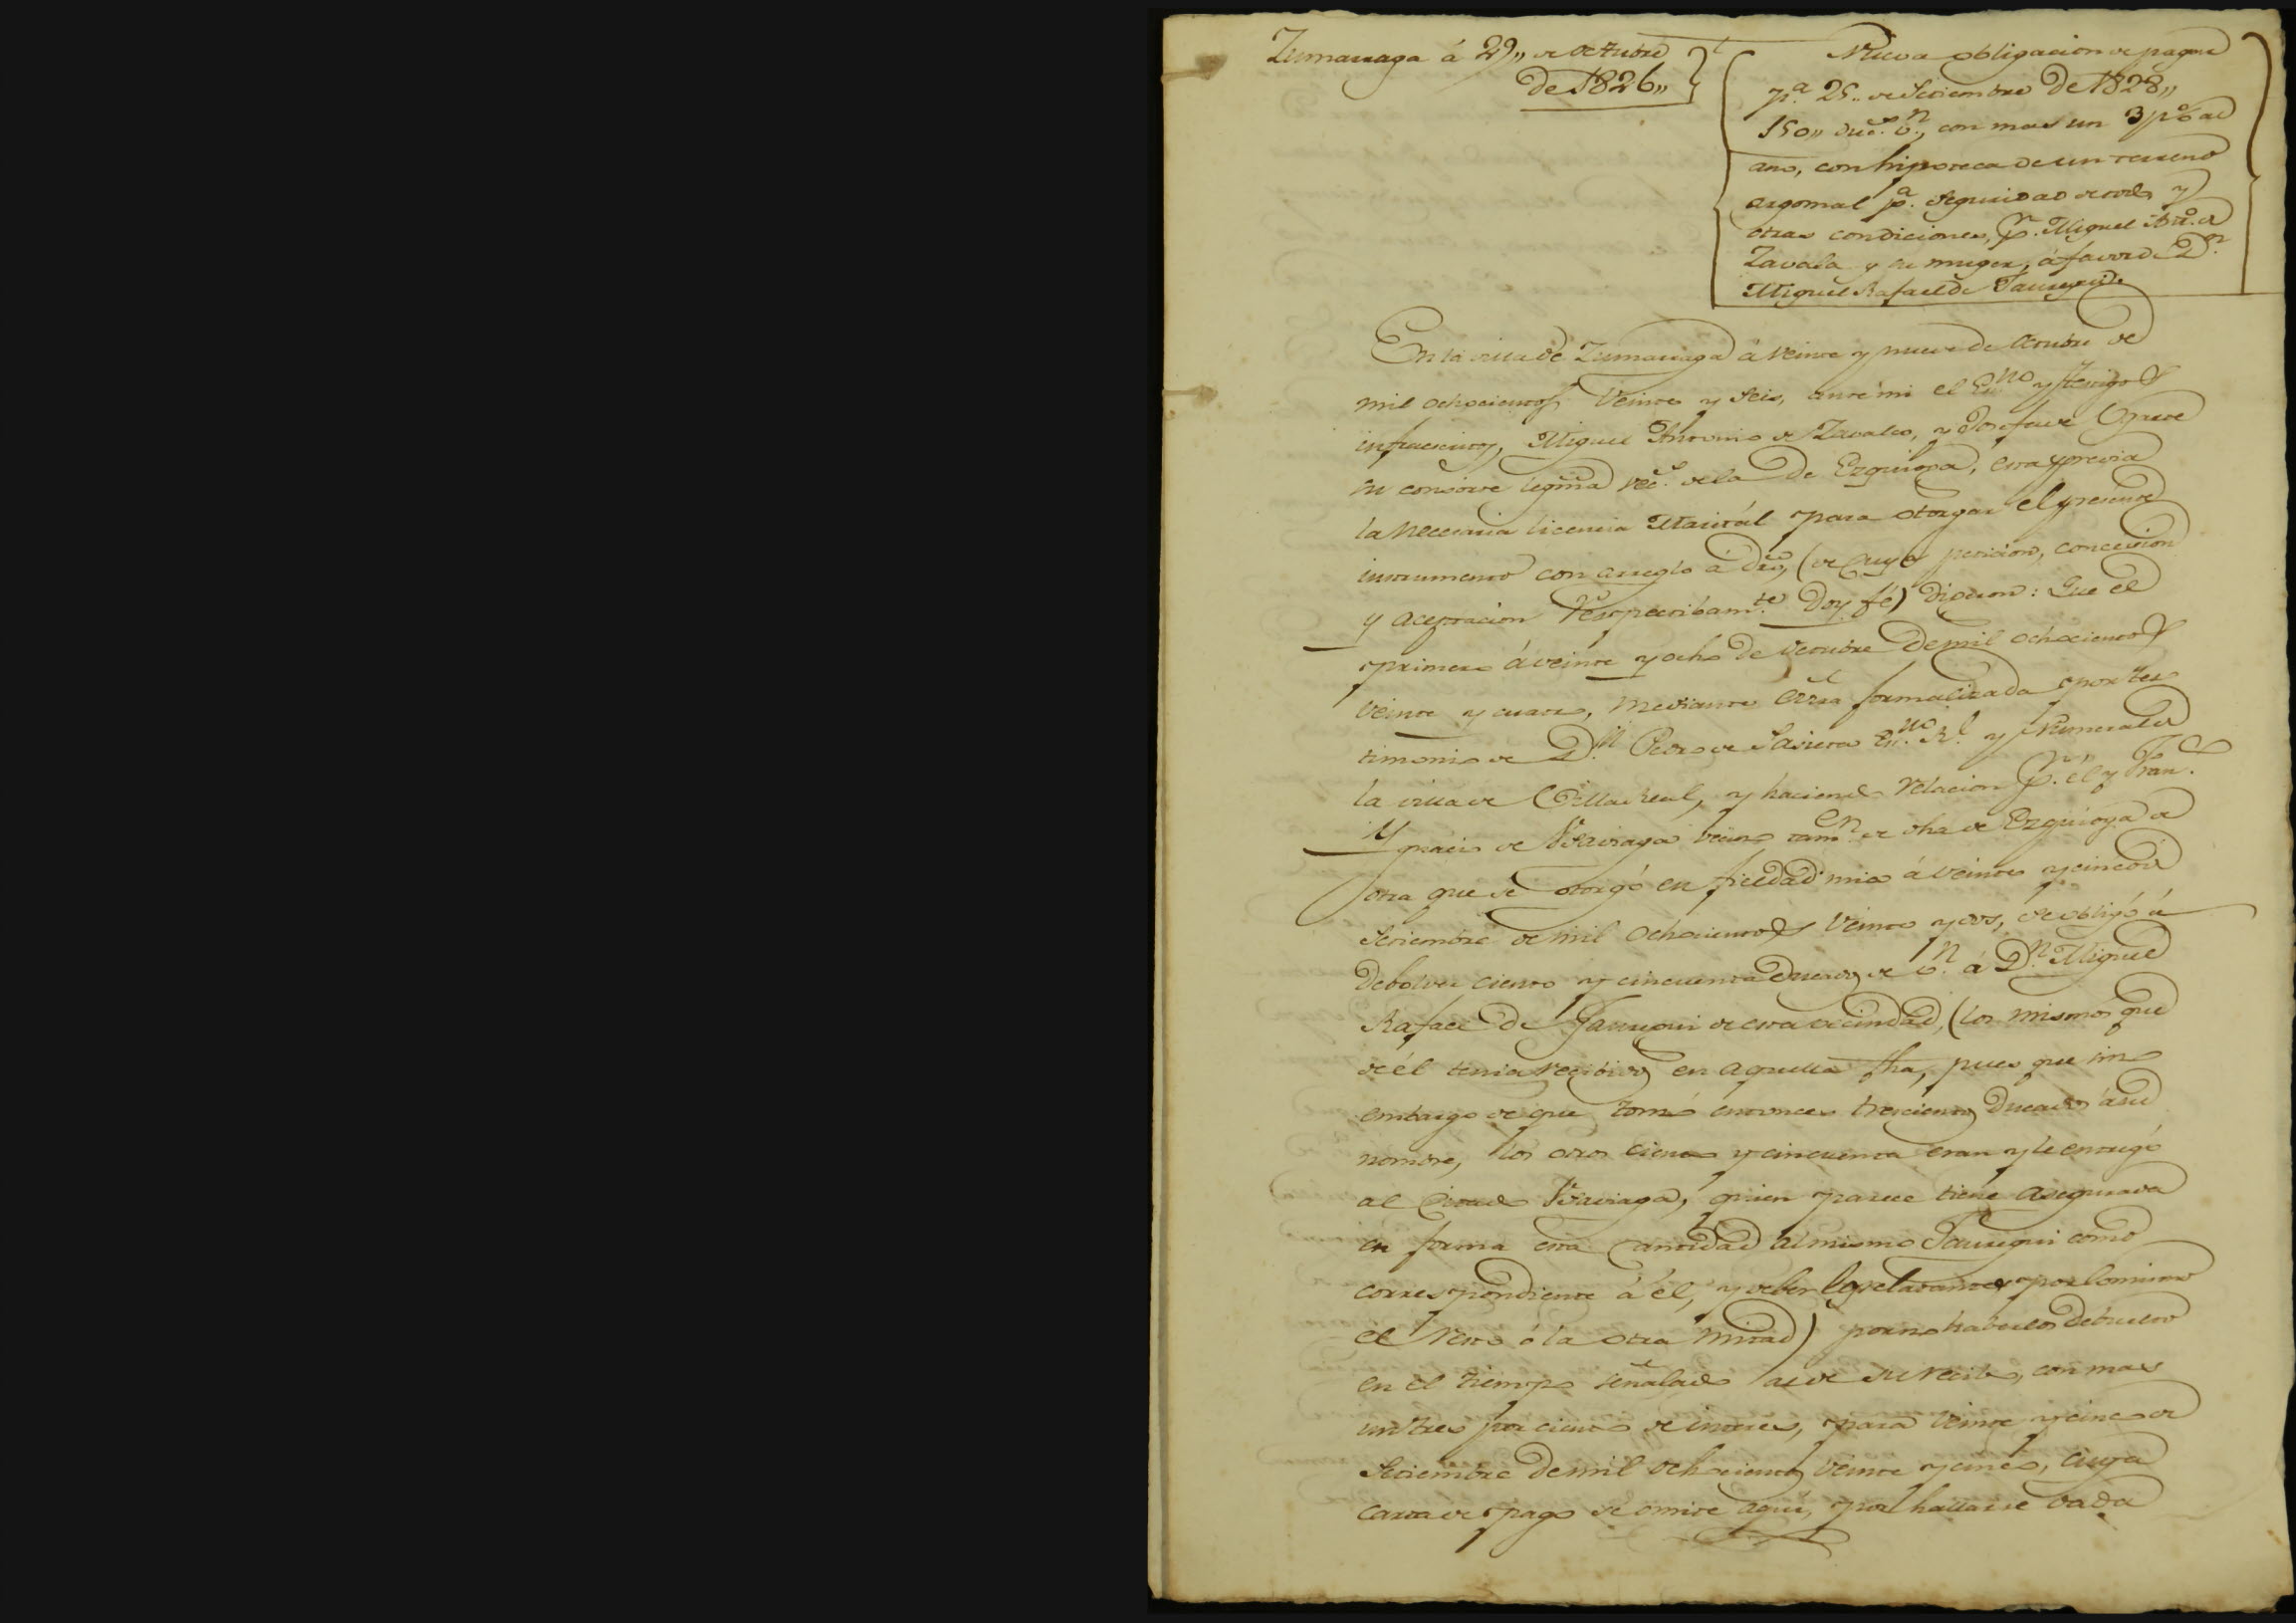 Zumarraga á 29,, de Octubre
de 1826,,
Nueva obligacion de pagar
p.ª 25,, de Setiembre de 1828,,
150,, duc.s v.n, con mas un 3 p% al
año, con hipoteca de un terreno
argomal p.a seguridad de todo y
otras condiciones, p.r Miguel Ant.o de
Zavala y su muger, á favor de D.n
Miguel Rafael de Jauregui.
En la villa de Zumarraga á veinte y nueve de Octubre de
mil ochocientos veinte y seis, ante mi el Es.no y testigos
infraescritos, Miguel Antonio de Zavala, y Josefa de
su consorte legma vec.s de la de Ezquioga, esta previa
la necesaria licencia Marital para otorgar el presente
instrumento con arreglo á dro, (de cuya peticion, concesion
y aceptacion respectibam.te doy fé) digeron: Que el
primero á veinte y ocho de Octubre de mil ochocientos
veinte y cuatro, mediante Esc.ra formalizada por tes
timonio de D.n Pedro de Es.no R.l y Numeral de
la villa de Villa Real, y haciendo relacion p.r él y Fran.co
Ygnacio de vecino tamb.n de dha de Ezquioga de
otra que se otorgó en fieldad mia á veinte y cinco de
Setiembre de mil ochocientos veinte y dos, se obligó á
debolver ciento y cincuenta ducados de v.n á D.n Miguel
Rafael de Jauregui de esta vecindad, (los mismos que
de él tenia recibidos en aquella fha, pues que sin
embargo de que tomó entonces trescientos ducados á su
nombre, los otros ciento y cincuenta eran y le entregó
al citado quien parece tiene asegurada
en forma esta cantidad al mismo Jauregui como
correspondiente á él, y deber los relatantes por lo mismo
el resto ó la otra mitad) por no haberlos debuelto
en el tiempo señalado de su recibo, con mas
un tres por ciento de interes, para veinte y cinco de
Setiembre de mil ochocientos veinte y cinco, cuya
carta de pago se omite aqui, por hallarse dada